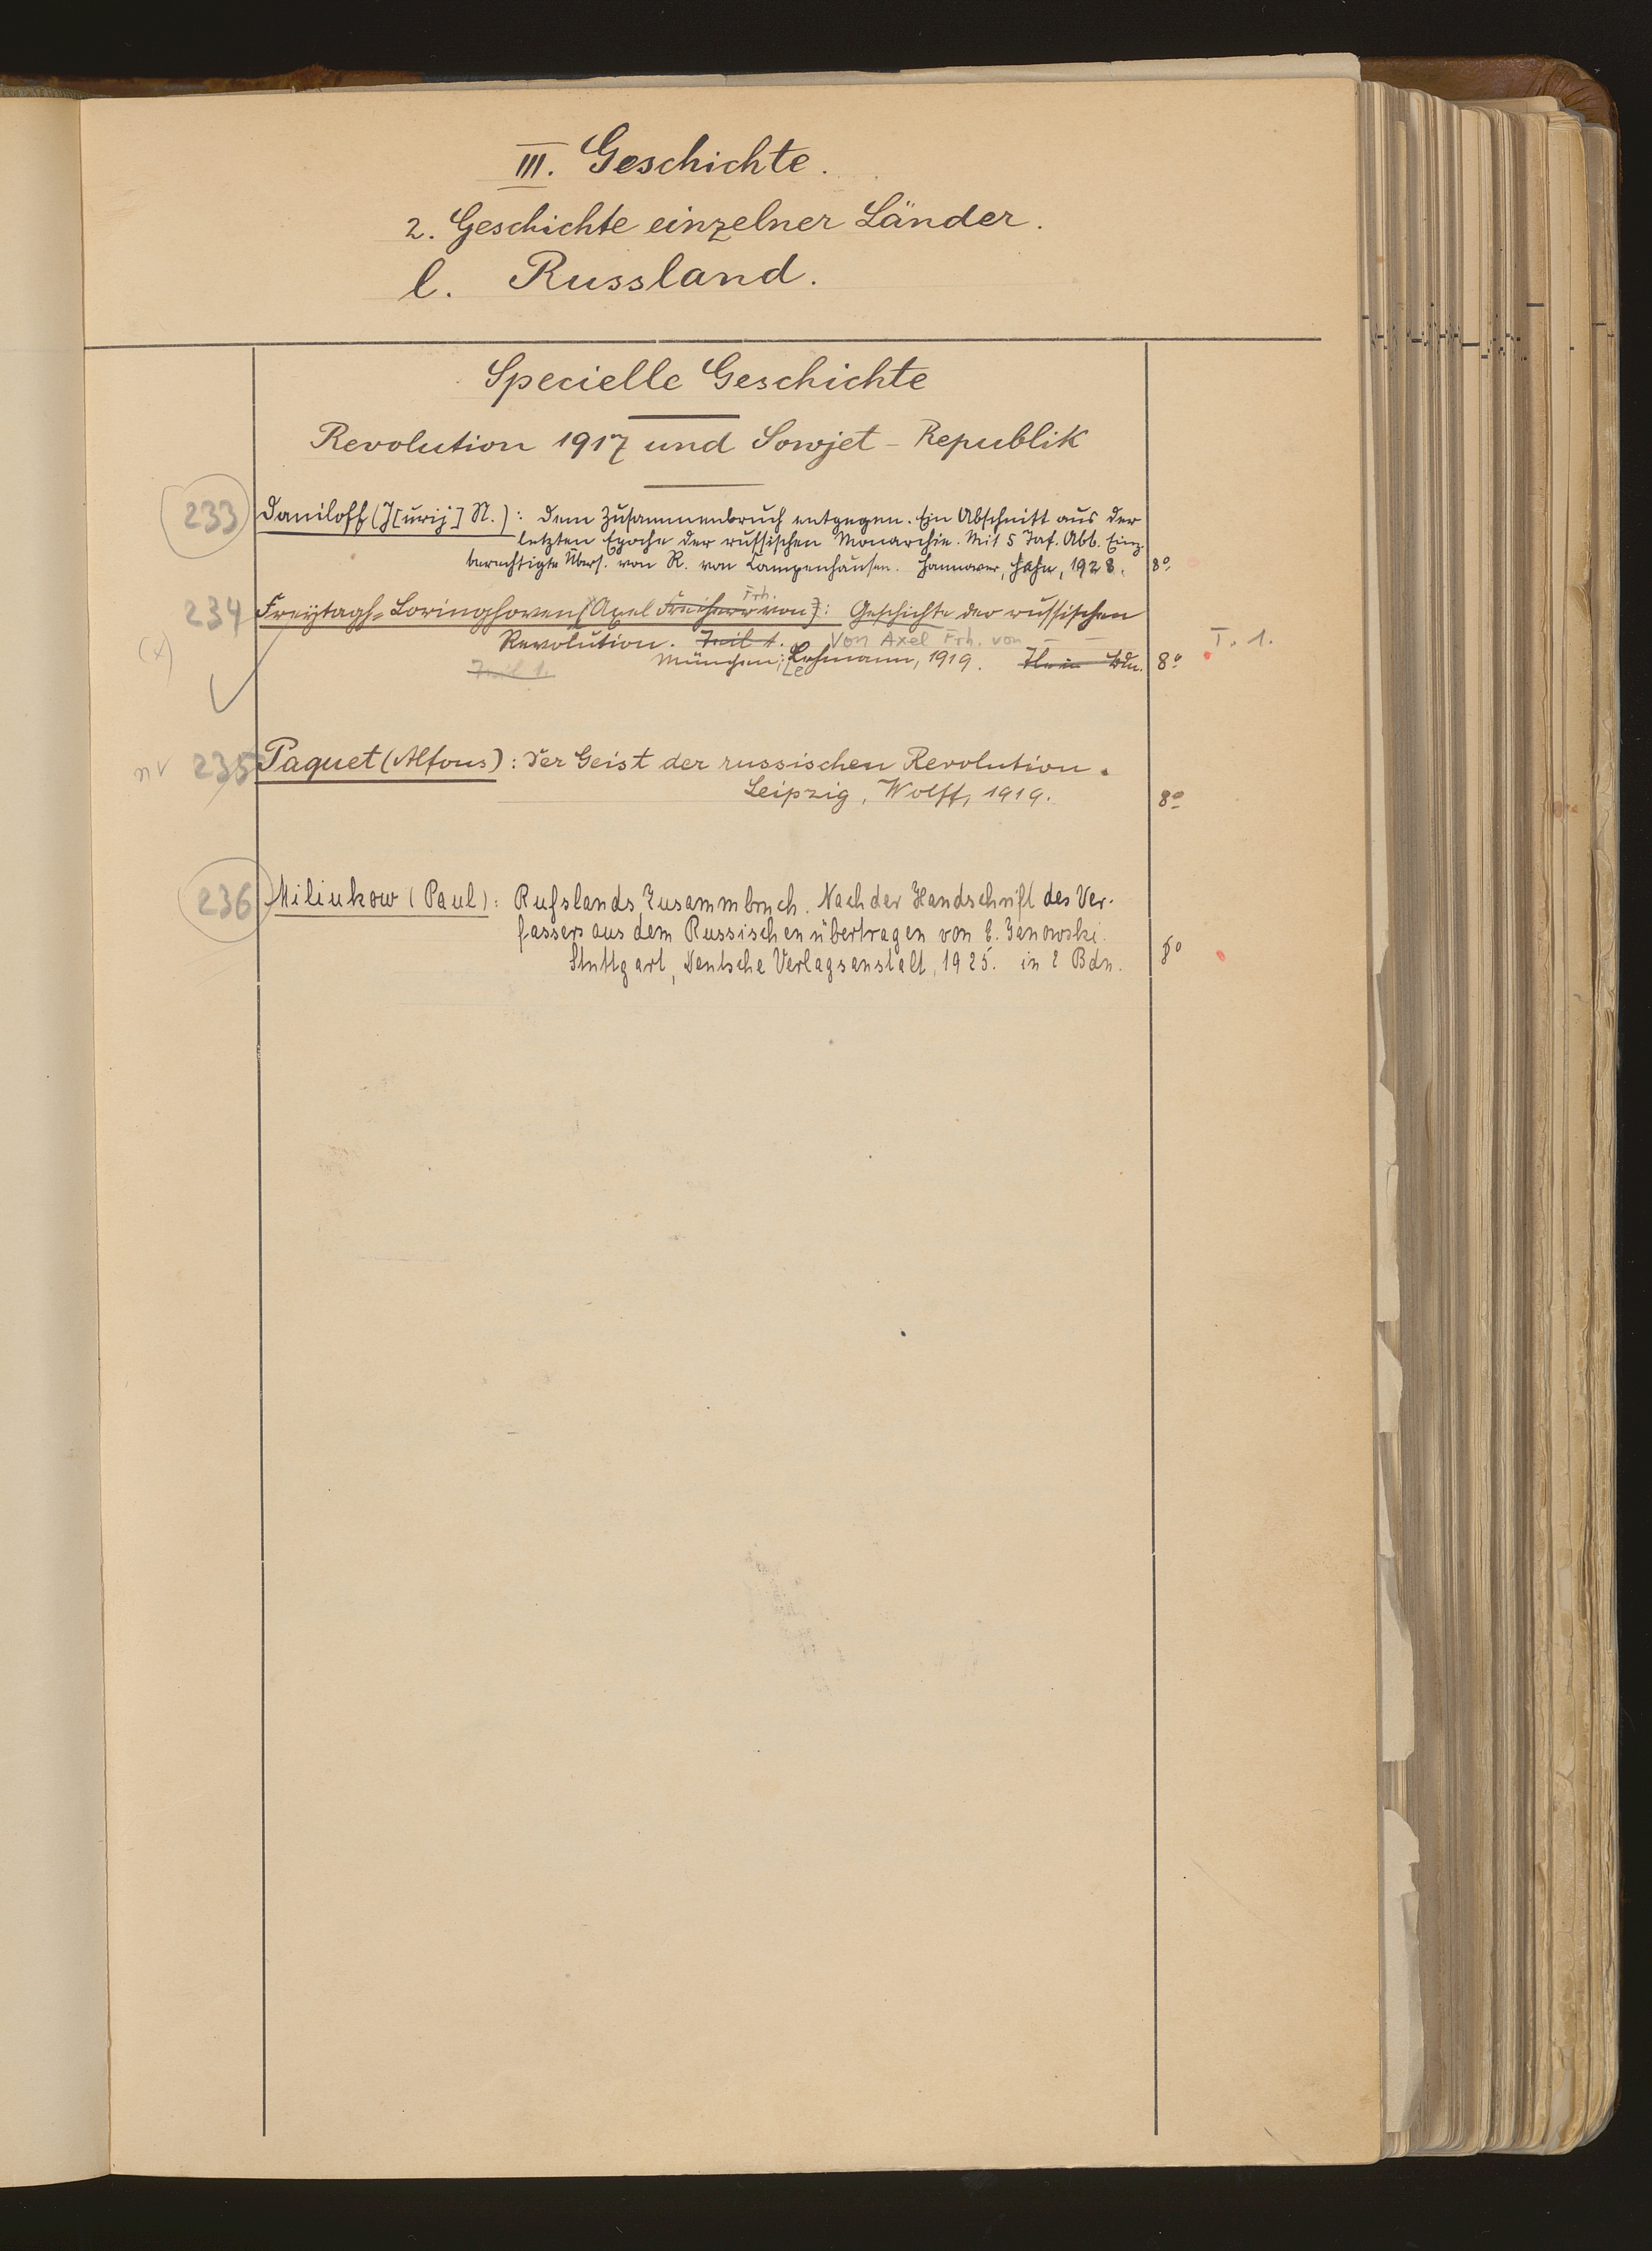 III. Geschichte.
2. Geschichte einzelner Länder.
l. Russland.
Specielle Geschichte
Revolution 1917 und Sowjet-Republik
233 Daniloff (J[urij] N.): Dem Zusammenbruch entgegen. Ein Abschnitt aus der
letzten Epoche der russischen Monarchie. Mit 5 Taf. Abb. Einz.
berechtigte Übers. von R. von Campenhausen. Hannover, Hahn, 1928. 8°
Frh.
234 Freytagh-Loringhoven (Axel Freiherr von): Geschichte der russischen
(x) Revolution. Teil 1. Von Axel Frh. von — — T. 1.
München, Lehmann, 1919. in Bdn. 8°
Teil 1. Le
nv 235 Paquet (Alfons): Der Geist der russischen Revolution.
Leipzig, Wolff, 1919. 8°
236 Miliukow (Paul): Rußlands Zusammbruch. Nach der Handschrift des Ver-
fassers aus dem Russischen übertragen von E. Janowski.
Stuttgart, Deutsche Verlagsanstalt, 1925. in 2 Bdn. 8°